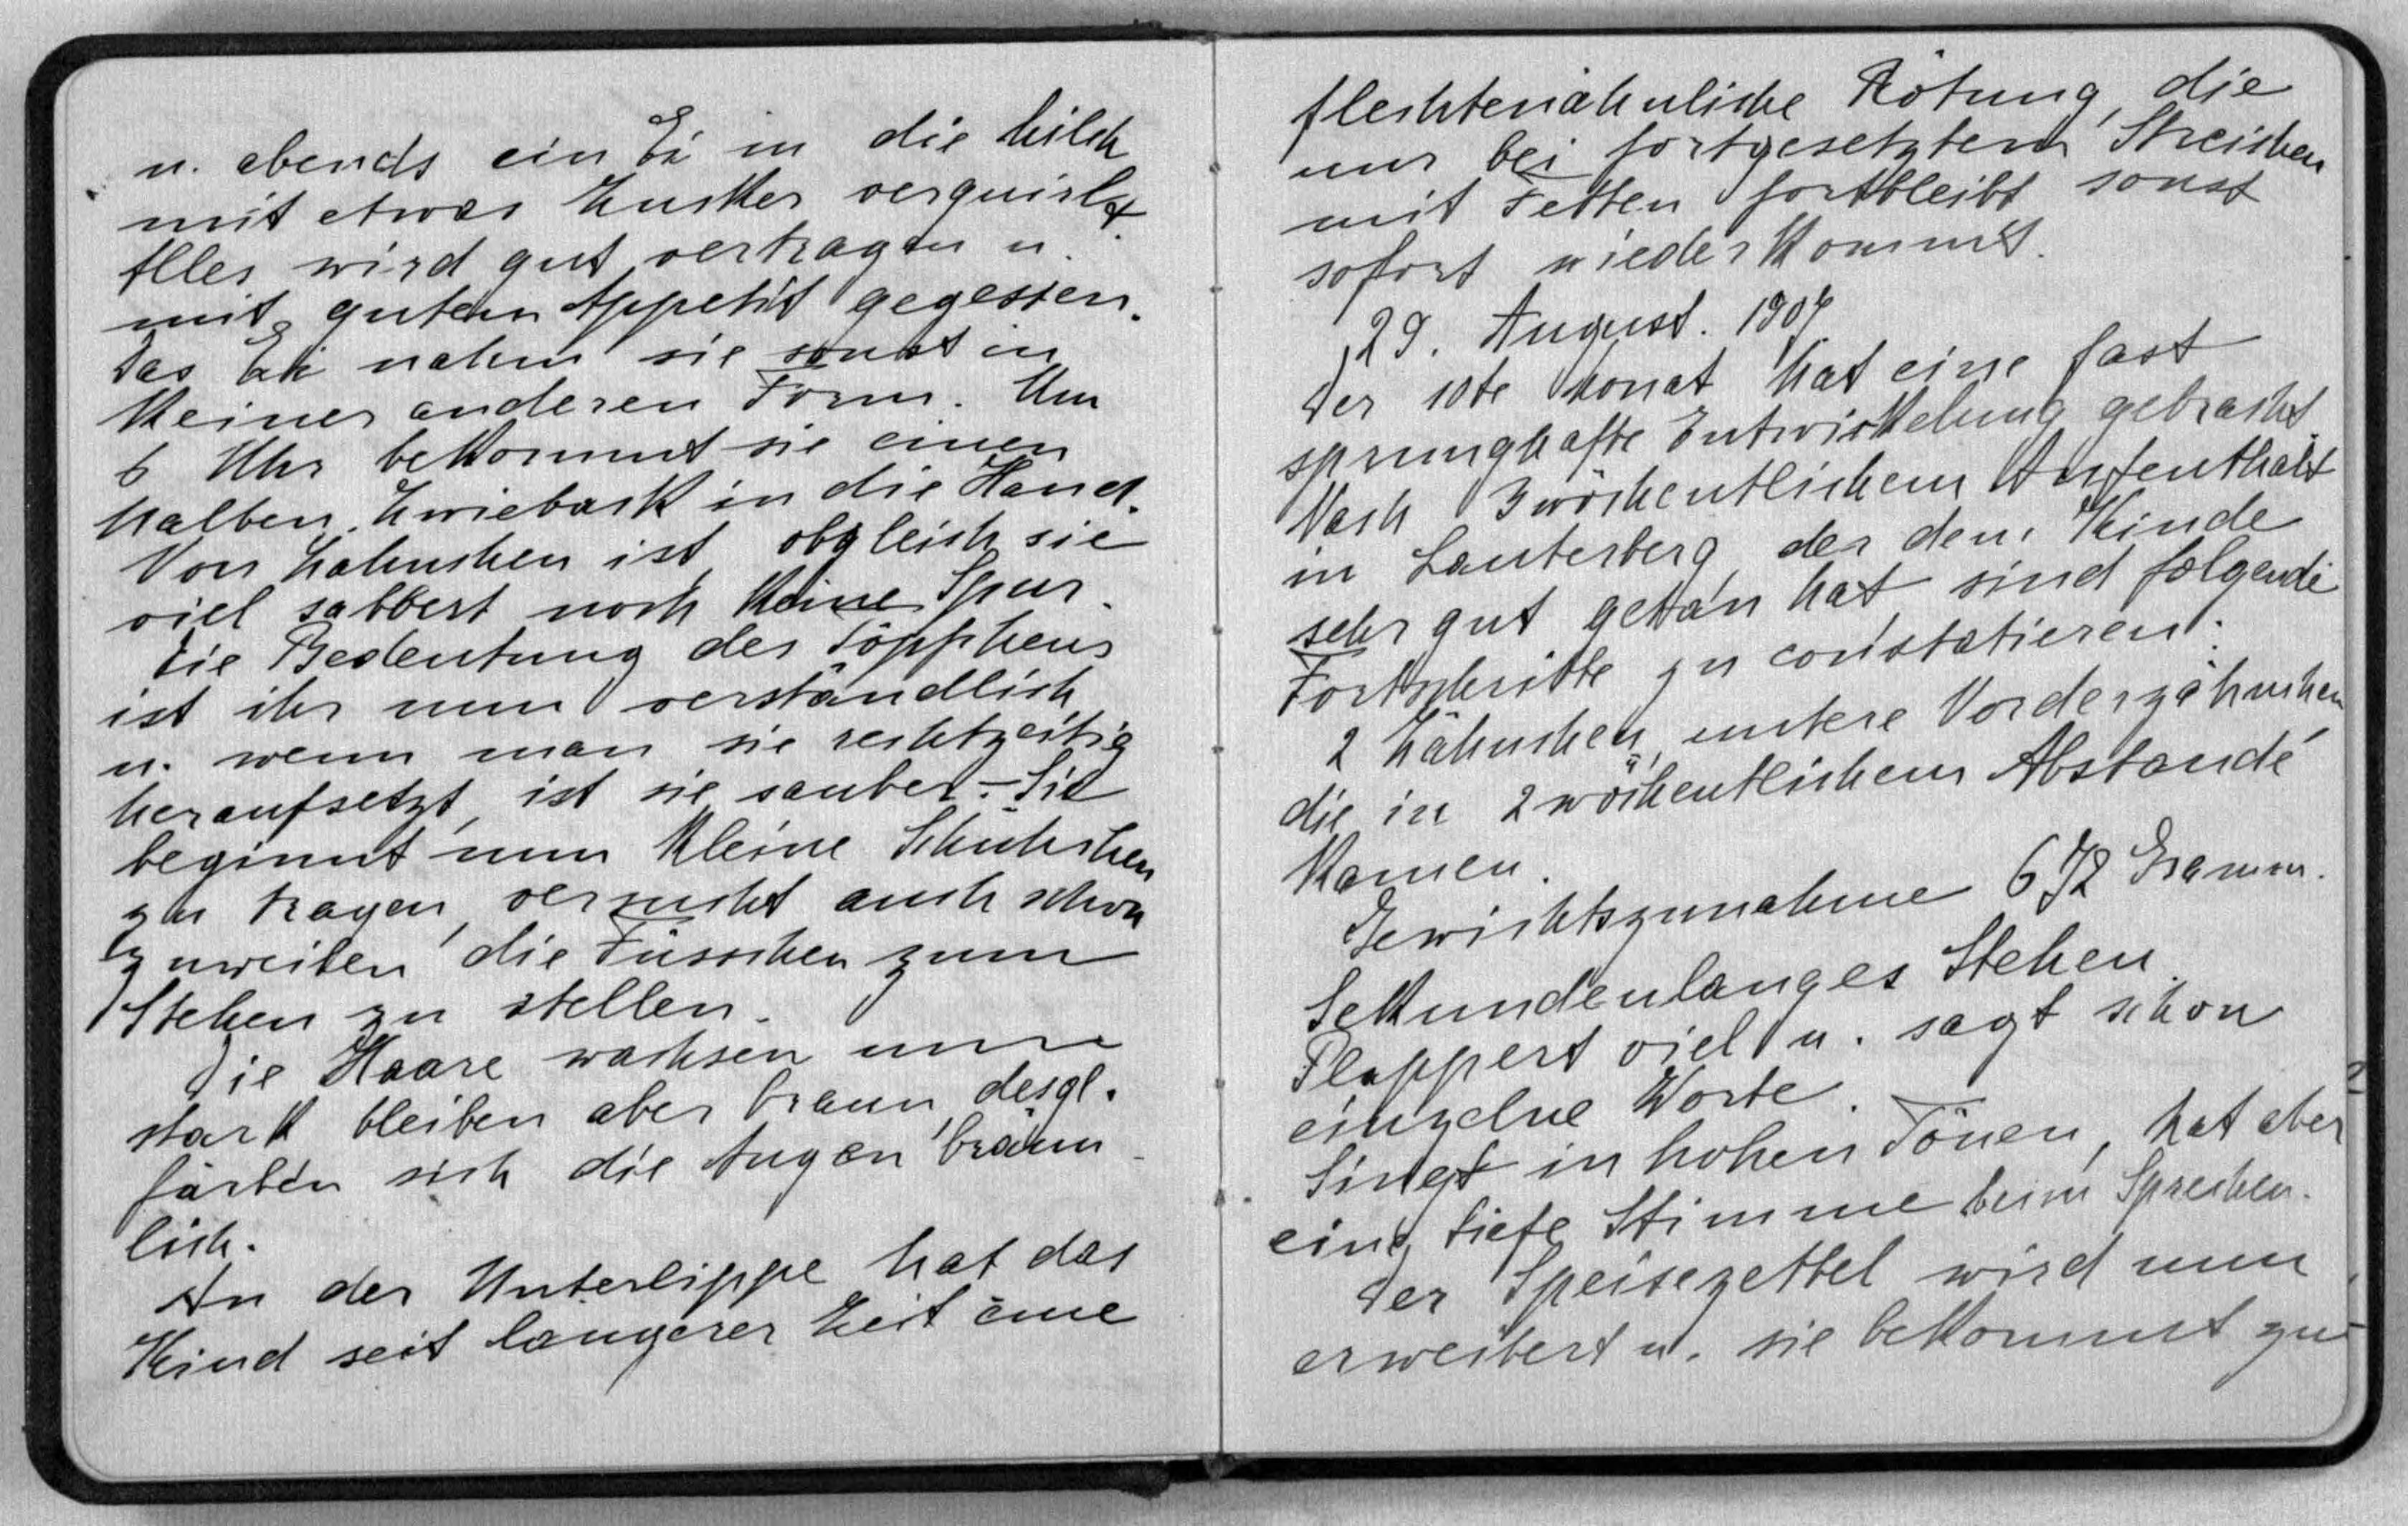 u. abends ein Ei in die Milch
mit etwas Zucker verquirlt.
Alles wird gut vertragen u.
mit gutem Appetit gegessen.
Das Ei nahm sie sonst in
keiner anderen Form. Um
6 Uhr bekommt sie einen
halben Zwieback in die Hand.
Von Zähnchen ist, obgleich sie
viel sabbert noch keine Spur.
Die Bedeutung des Töpfchens
ist ihr nun verständlich
u. wenn man sie rechtzeitig
heraufsetzt, ist sie sauber. – Sie
beginnt nun kleine Schuhchen
zu tragen, versucht auch schon
zuweilen die Füsschen zum
Stehen zu stellen.
Die Haare wachsen nun
stark bleiben aber braun, desgl.
färben sich die Augen bräun-
lich.
An der Unterlippe hat das
Kind seit längerer Zeit eine
flechtenähnliche Rötung, die
nur bei fortgesetztem Streichen
mit Fetten fortbleibt sonst
sofort wiederkommt.
29. August. 1907
Der 10te Monat hat eine fast
sprunghafte Entwickelung gebracht.
Nach 3 wöchentlichem Aufenthalt
in Lauterberg, der dem Kinde
sehr gut getan hat, sind folgende
Fortschritte zu constatieren:
2 Zähnchen, untere Vorderzähnchen,
die in 2 wöchentlichem Abstande
kamen.
Gewichtszunahme 672 Gramm.
Sekundenlanges Stehen.
Plappert viel u. sagt schon
einzelne Worte.
Singt in hohen Tönen, hat aber
eine tiefe Stimme beim Sprechen.
Der Speisezettel wird nun
erweitert u. sie bekommt zu-